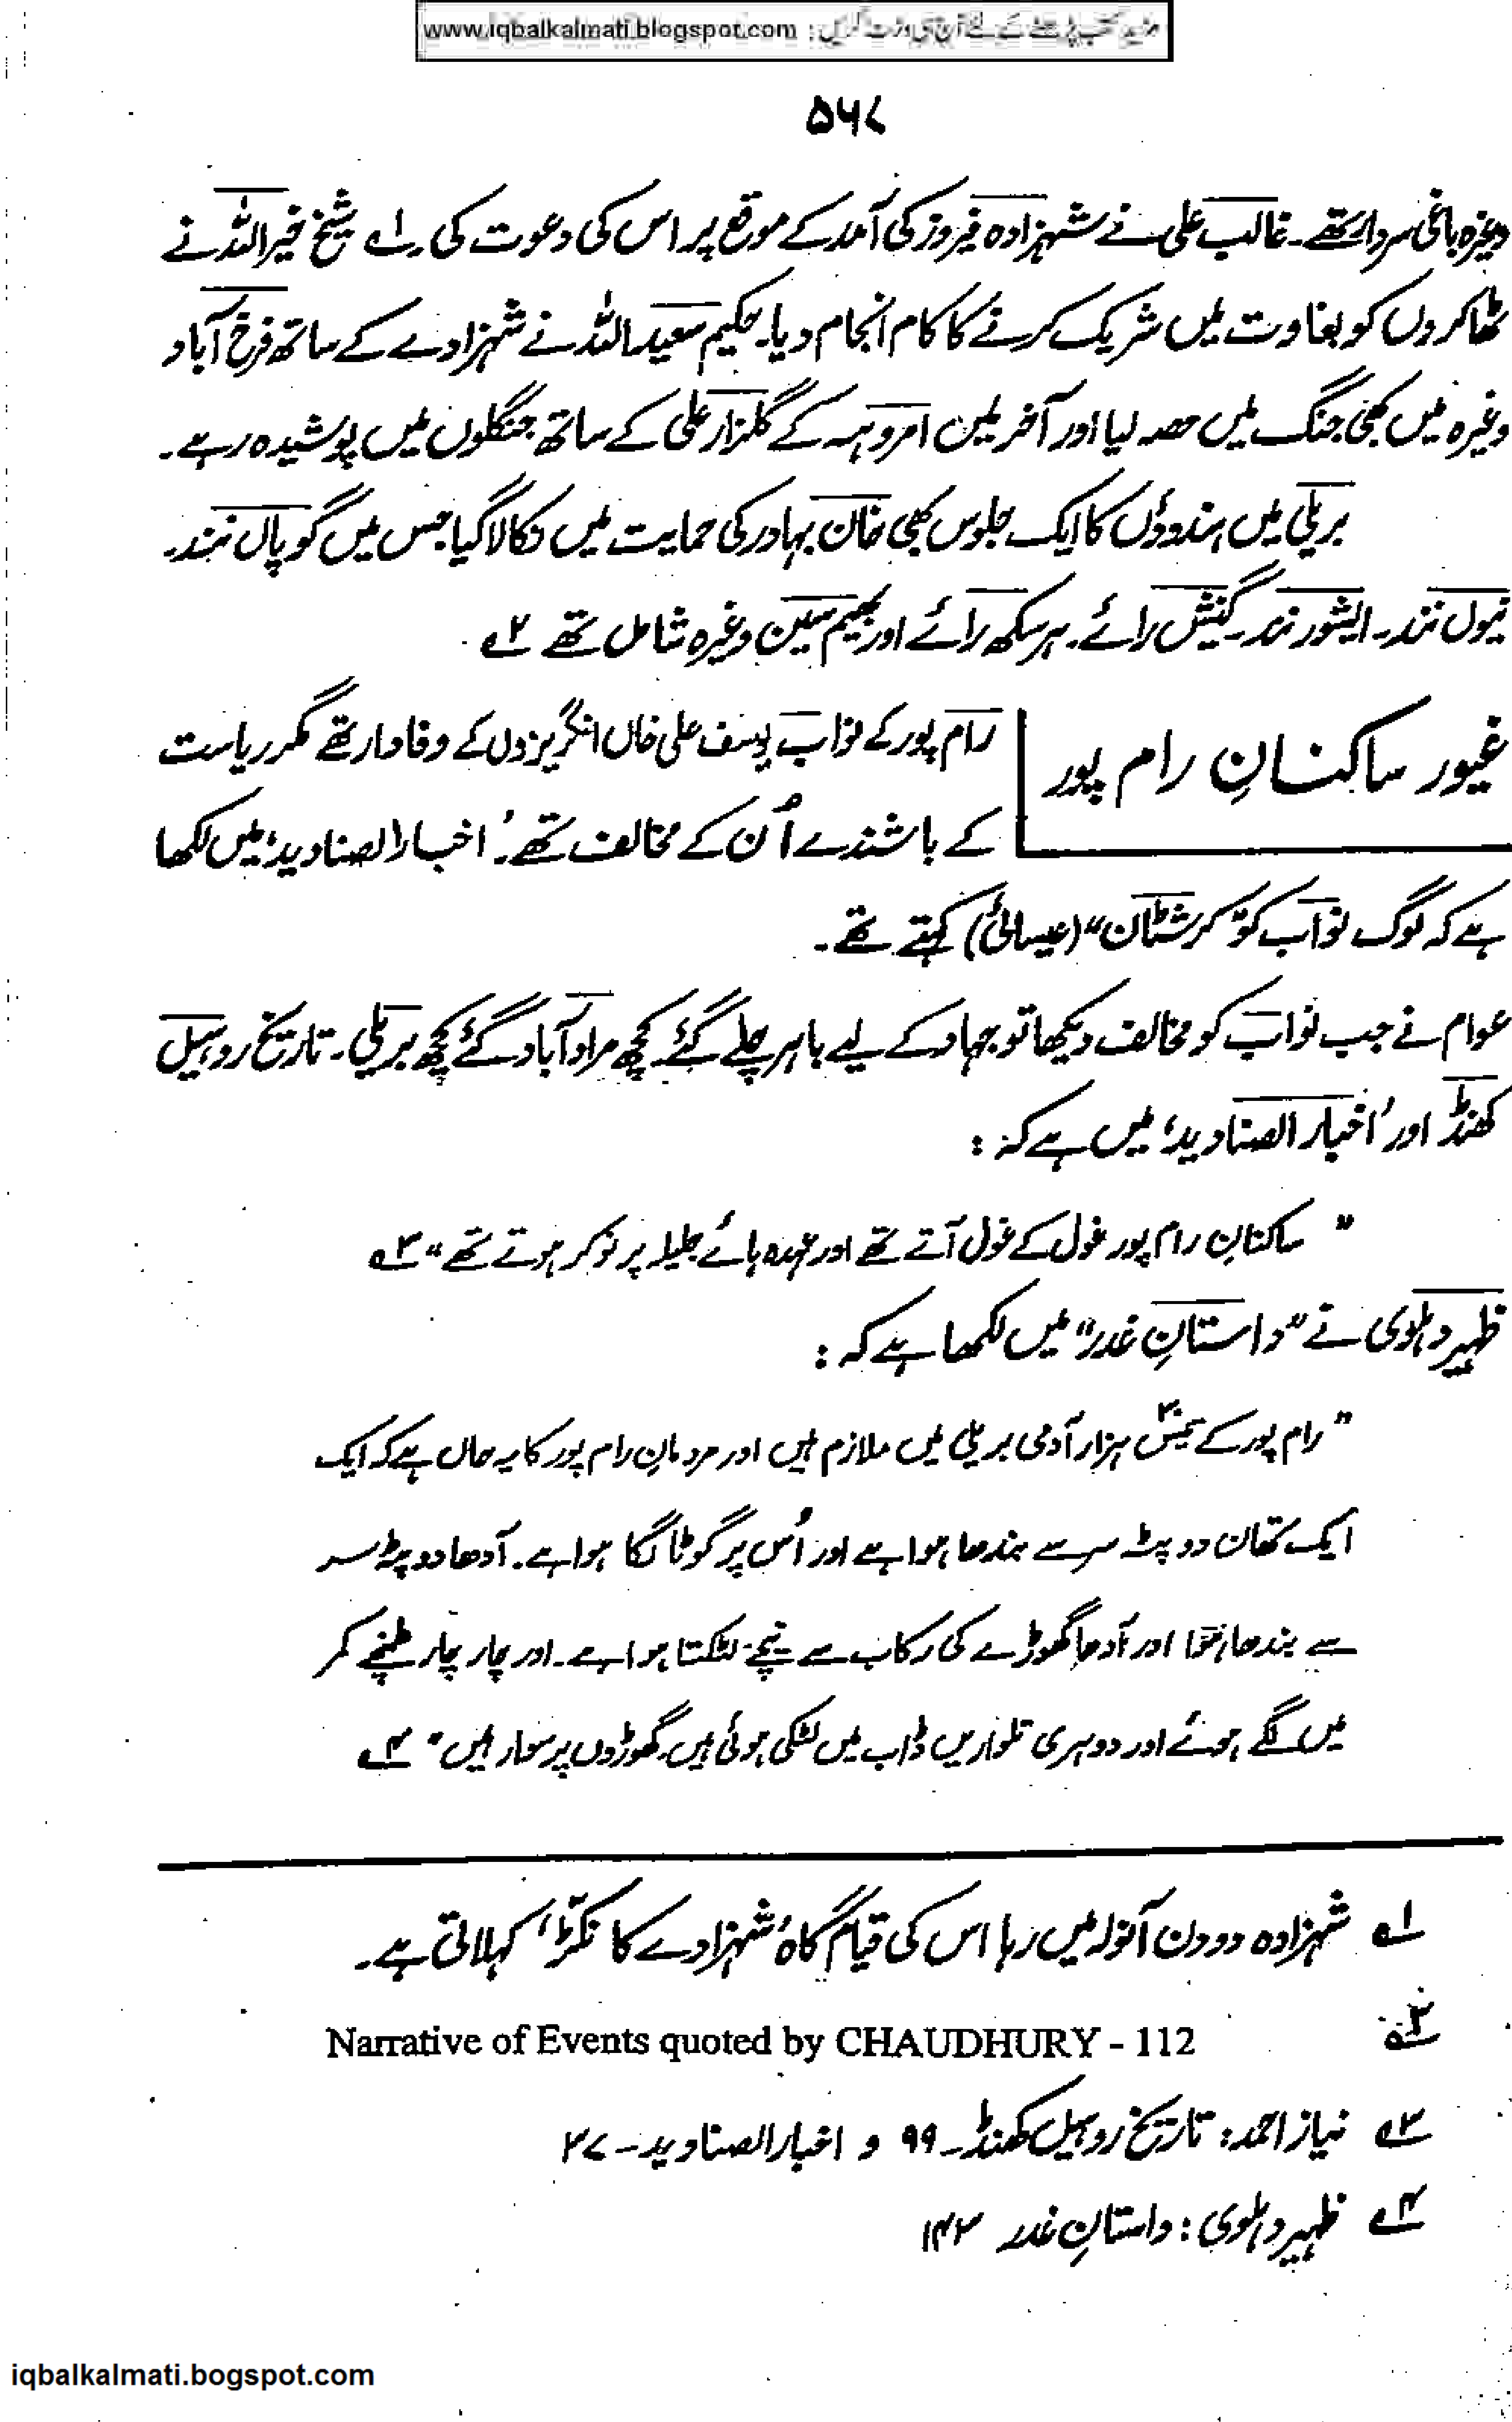 مزید کتب پڑھنے کے لئے آج ہی وزٹ کریں : www.iqbalkalmati.blogspot.com
۵۶۷
وغیرہ باغی سردار تھے۔ غالب علی نے شہزادہ فیروز کی آمد کے موقع پر اس کی دعوت کی ۔۱؎ شیخ خیراللہ نے
ٹھاکروں کو بغاوت میں شریک کرنے کا کام انجام دیا۔ حکیم سعید اللہ نے شہزادے کے ساتھ فرخ آباد
وغیرہ میں بھی جنگ میں حصہ لیا اور آخر میں امروہہ کے گلزار علی کے ساتھ جنگلوں میں پوشیدہ رہے۔
بریلی میں ہندوؤں کا ایک جلوس بھی خان بہادر کی حمایت میں نکالا گیا جس میں گوپال نند۔
نیول نند۔ ایشور نند۔ گنیش رائے۔ ہر سکھ رائے اور بھیم سین وغیرہ شامل تھے ۲؎
غیور ساکنانِ رام پور
رام پور کے نواب یوسف علی خاں انگریزوں کے وفادار تھے مگر ریاست
کے باشندے اُن کے مخالف تھے۔ 'اخبار الصنادید' میں لکھا
ہے کہ لوگ نواب کو "کرشٹان" (عیسائی) کہتے تھے۔
عوام نے جب نواب کو مخالف دیکھا تو جہاد کے لیے باہر چلے گئے۔ کچھ مرادآباد گئے کچھ بریلی۔ تاریخ روہیل
کھنڈ اور 'اخبار الصنادید' میں ہے کہ :
" ساکنانِ رام پور غول کے غول آتے تھے اور عہدہ ہائے جلیلہ پر نوکر ہوتے تھے " ۳؎
ظہیر دہلوی نے "داستانِ غدر" میں لکھا ہے کہ :
" رام پور کے تیس۳۰ ہزار آدمی بریلی میں ملازم ہیں اور مردمانِ رام پور کا یہ حال ہے کہ ایک
ایک تھان دوپٹہ سر سے بندھا ہوا ہے اور اُس پر گوٹا لگا ہوا ہے۔ آدھا دوپٹہ سر
سے بندھا ہوا اور آدھا گھوڑے کی رکاب سے نیچے لٹکتا ہوا ہے۔ اور چار چار طپنچے کمر
میں لگے ہوئے اور دوہری تلواریں ڈاب میں لٹکی ہوئی ہیں۔ گھوڑوں پر سوار ہیں " ۴؎
۱؎ شہزادہ دو دن آنولہ میں رہا اس کی قیام گاہ 'شہزادے کا تکڑ' کہلاتی ہے۔
۲؎ Narrative of Events quoted by CHAUDHURY - 112
۳؎ نیاز احمد : تاریخ روہیل کھنڈ۔ ۹۹ و اخبار الصنادید۔ ۲۷
۴؎ ظہیر دہلوی : داستانِ غدر ۱۴۲
iqbalkalmati.bogspot.com